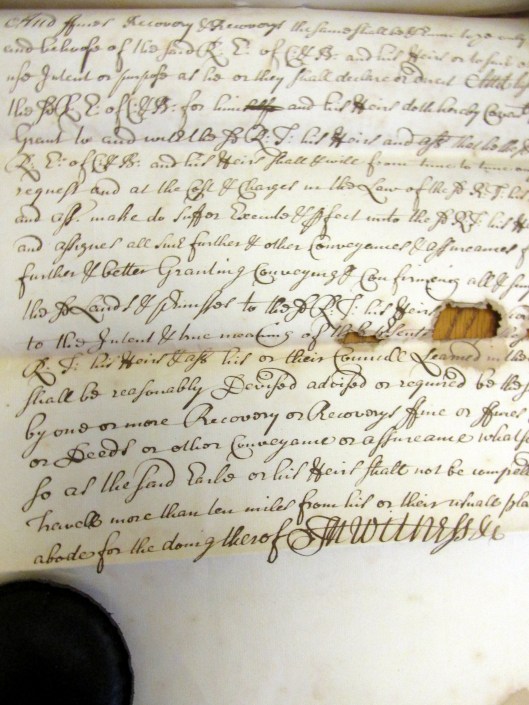 and behoofe of the said R. E. of C & B: and his Heirs or to such
use Intent or purpose as he or they shall declare or direct And
the sd R E: of C & B: for him and his Heirs doth hereby
Grant to and with the sd R: T: his Heirs and asss that he the
R: E: of C & B: and his Heirs shall & will from time to time
request and at the Cost & Charges in the Law of the sd R: T: his
and asss make do suffer Execute & Effect unto the sd R: T: his
and assignes all such further & other Conveyances & assurances
further & better Granting Conveying & Confirming all &
the sd Lands & premisses to the sd R: T: his Heirs
to the Intent & true meaning of
R: T: his Heirs & asss his or their Councill Learned in the
shall be reasonably Devised advised or required be they
by one or more Recovery or Recoverys ffine or ffines
or Deeds or other Conveyance or assurance
so as the said Earle or his Heirs shall not be
travell more than ten miles from his or their usuall
abode for the doing therof In witness &c